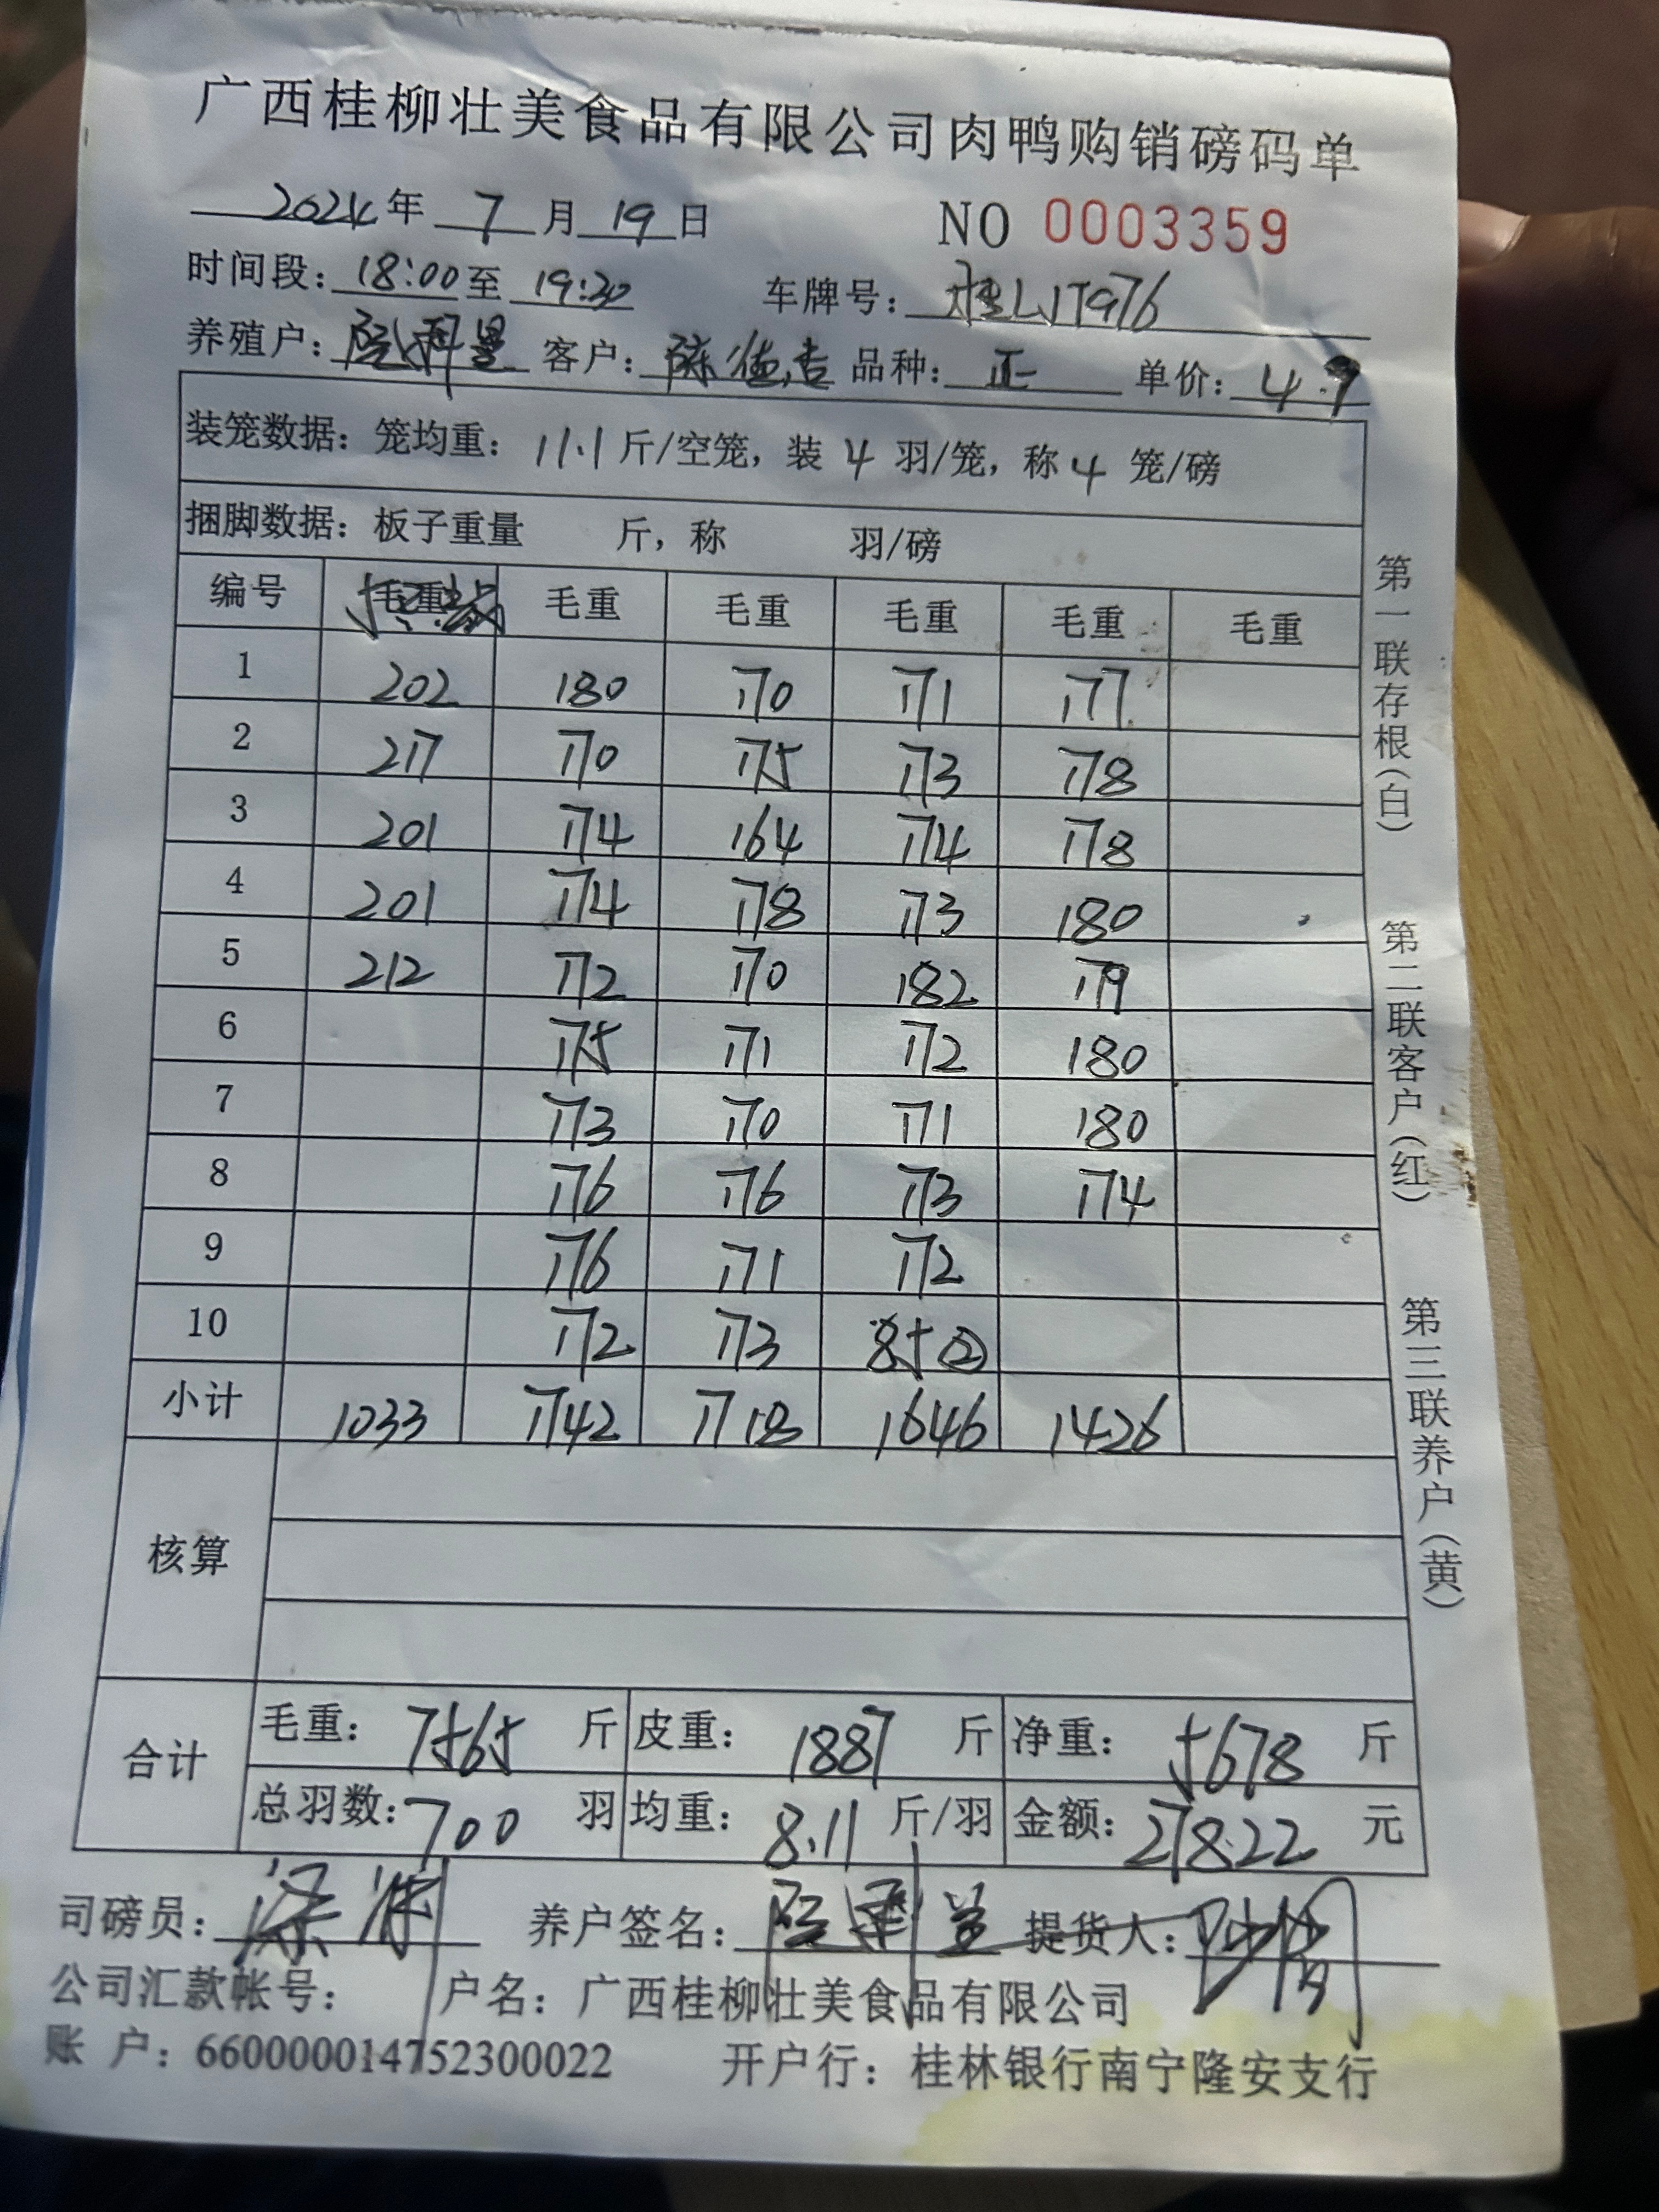 广西桂柳壮美食品有限公司肉鸭购销磅码单
2024年 7 月 19 日 NO 0003359
时间段: 18:00 至 19:30 车牌号: 桂LJT976
养殖户: 客户: 陈 品种: 正 单价: 4.9
装笼数据: 笼均重: 11.1 斤/空笼, 装 4 羽/笼, 称 4 笼/磅
捆脚数据: 板子重量 斤, 称 羽/磅
编号 毛重 毛重 毛重 毛重 毛重
1 202 180 170 171 177
2 217 170 175 173 178
3 201 174 164 174 178
4 201 174 178 173 180
5 212 172 170 182 179
6 175 171 172 180
7 173 170 171 180
8 176 176 173 174
9 176 171 172
10 172 173 85②
小计 1033 1742 1718 1646 1426
核算
合计 毛重: 7565 斤 皮重: 1887 斤 净重: 5678 斤
总羽数: 700 羽 均重: 8.11 斤/羽 金额: 27822 元
司磅员: 养户签名: 提货人:
公司汇款帐号: 户名: 广西桂柳壮美食品有限公司
账 户: 660000014752300022 开户行: 桂林银行南宁隆安支行
第一联存根(白)
第二联客户(红)
第三联养户(黄)